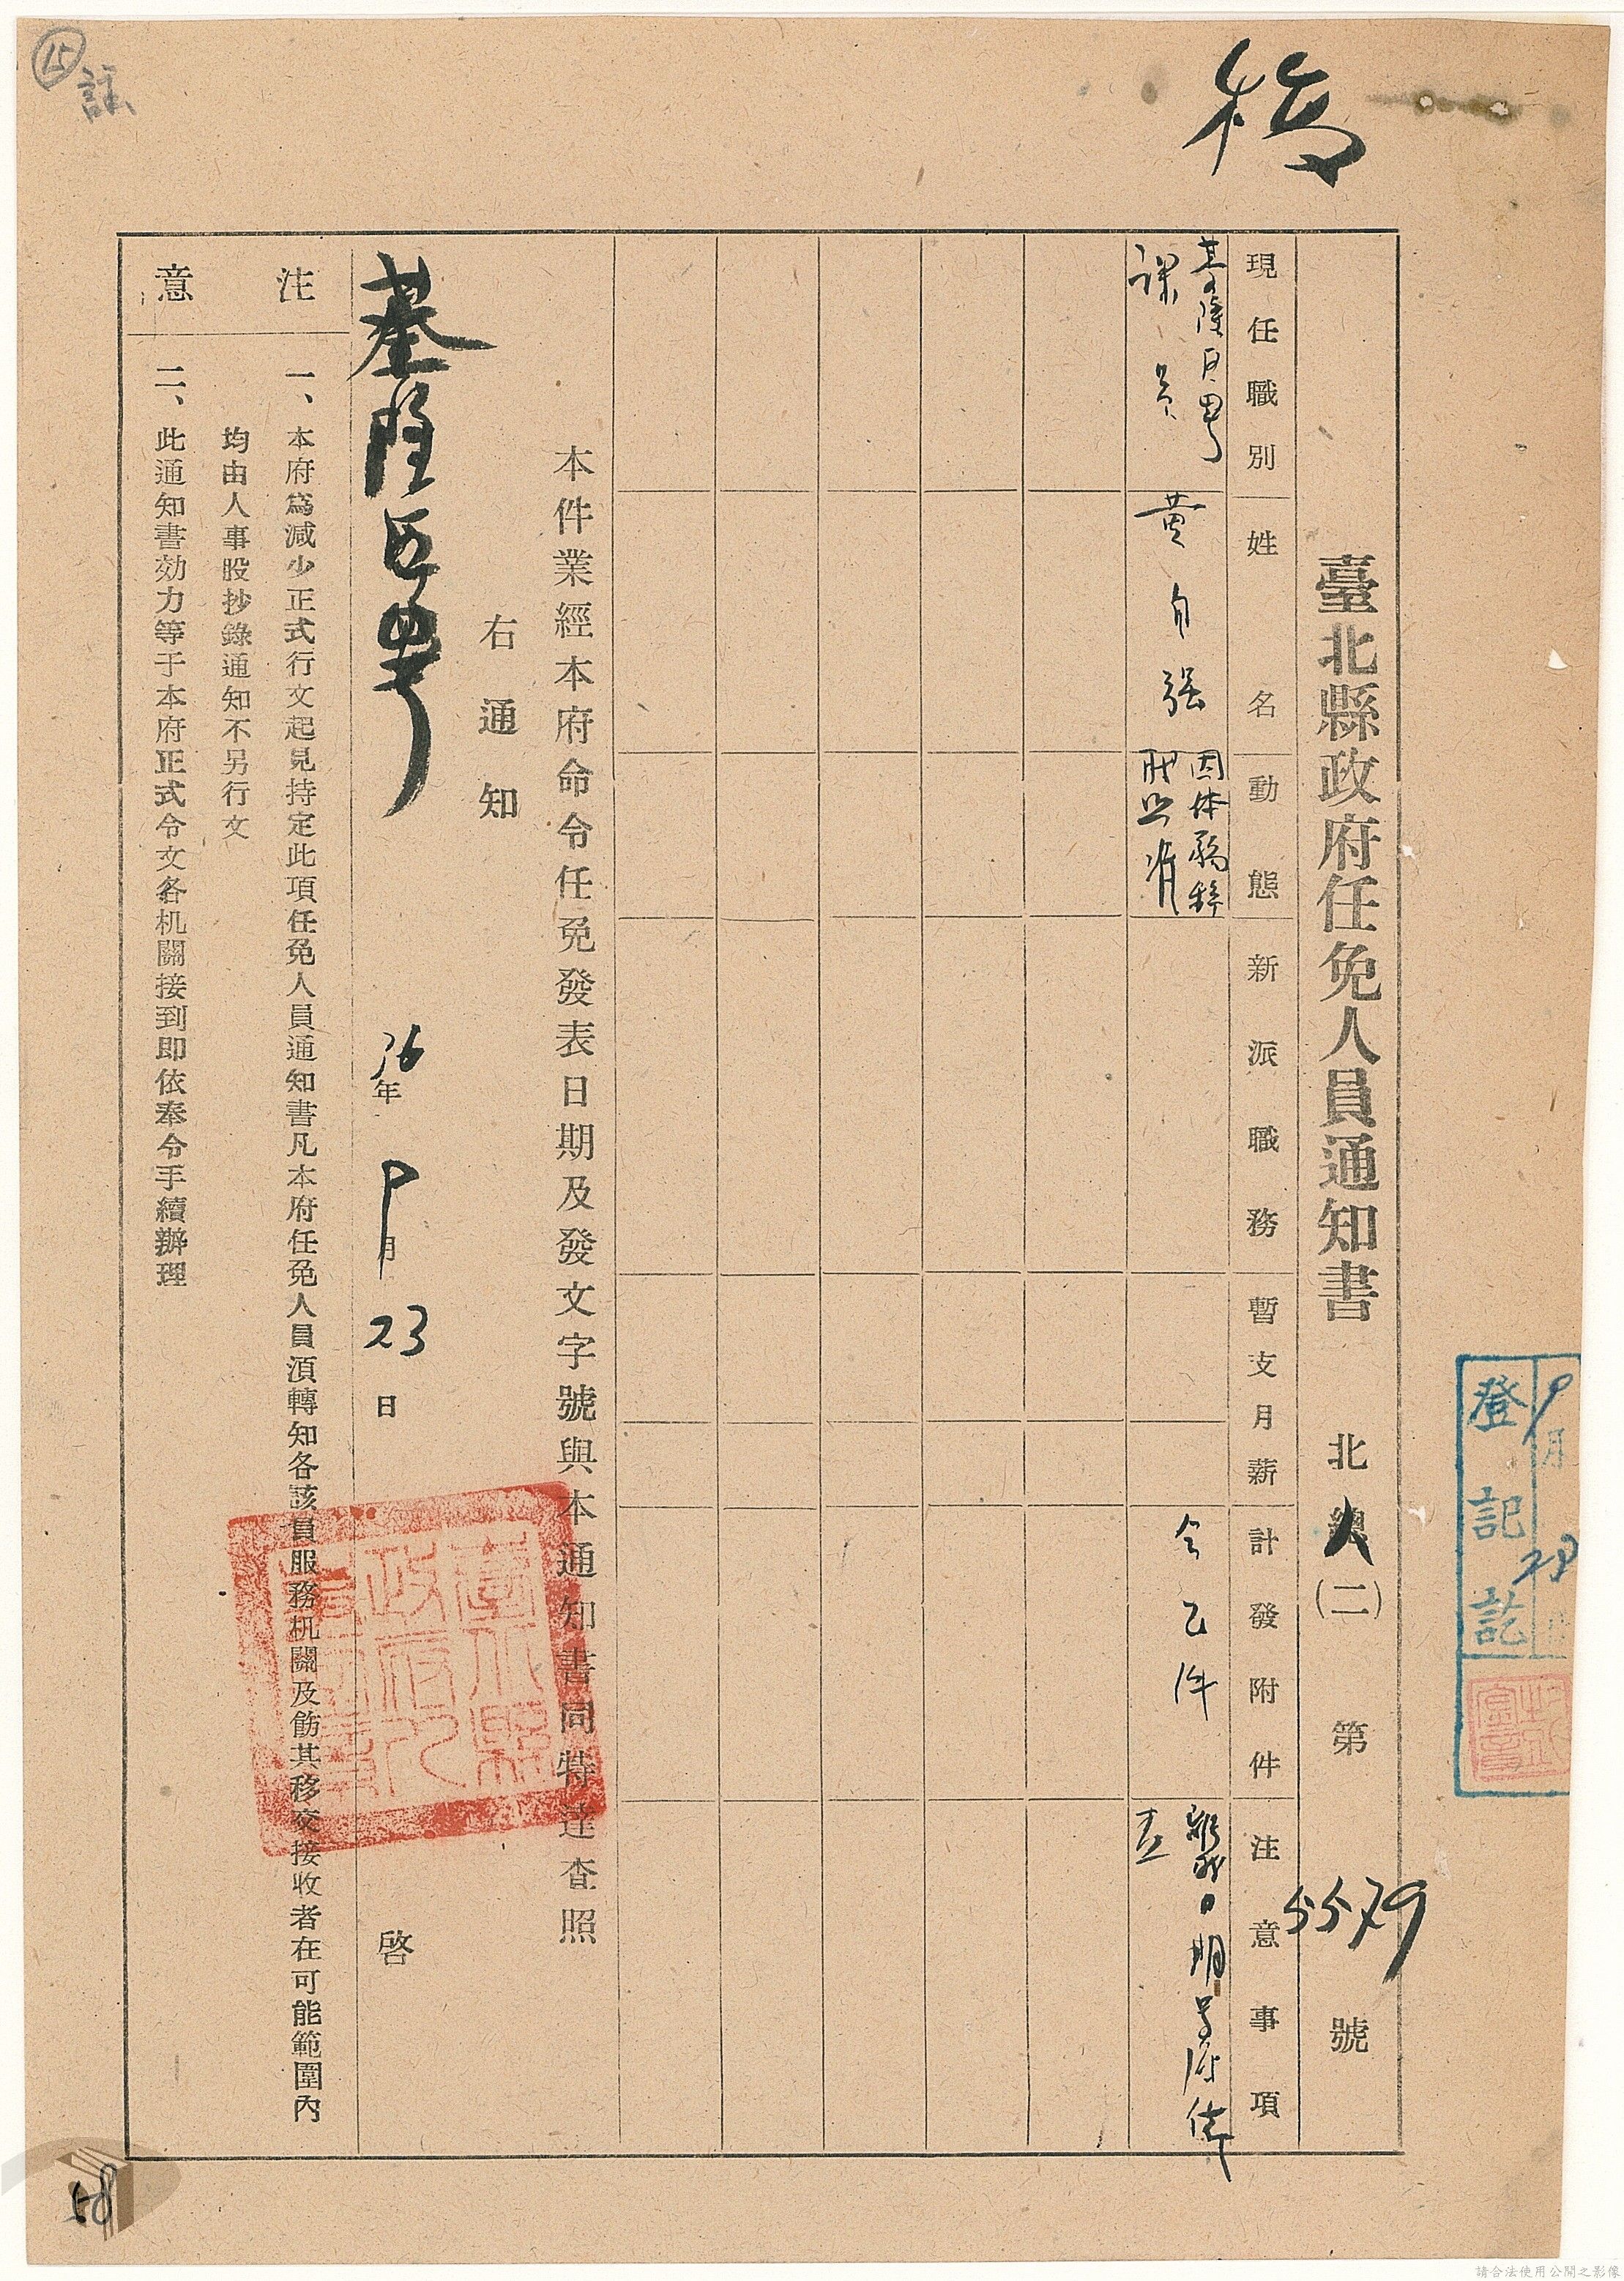 稿
臺北縣政府任免人員通知書 北人(二) 第5579號
登記訖
9月23
現任職別
姓名
動態
新派職務
暫支月薪
計發附件
注意事項
基隆區署
課員
黃自强
因体弱辞
職照准
令乙件
離職日期另候備
查
本件業經本府命令任免發表日期及發文字號與本通知書同特達查照
右通知
基隆區署 36年9月23日 啓
注意
一、本府爲減少正式行文起見持定此項任免人員通知書凡本府任免人員須轉知各該員服務机關及飭其移交接收者在可能範圍內
均由人事股抄錄通知不另行文
二、此通知書効力等于本府正式令文各机關接到即依奉令手續辦理
15
註
58
請合法使用公開之影像